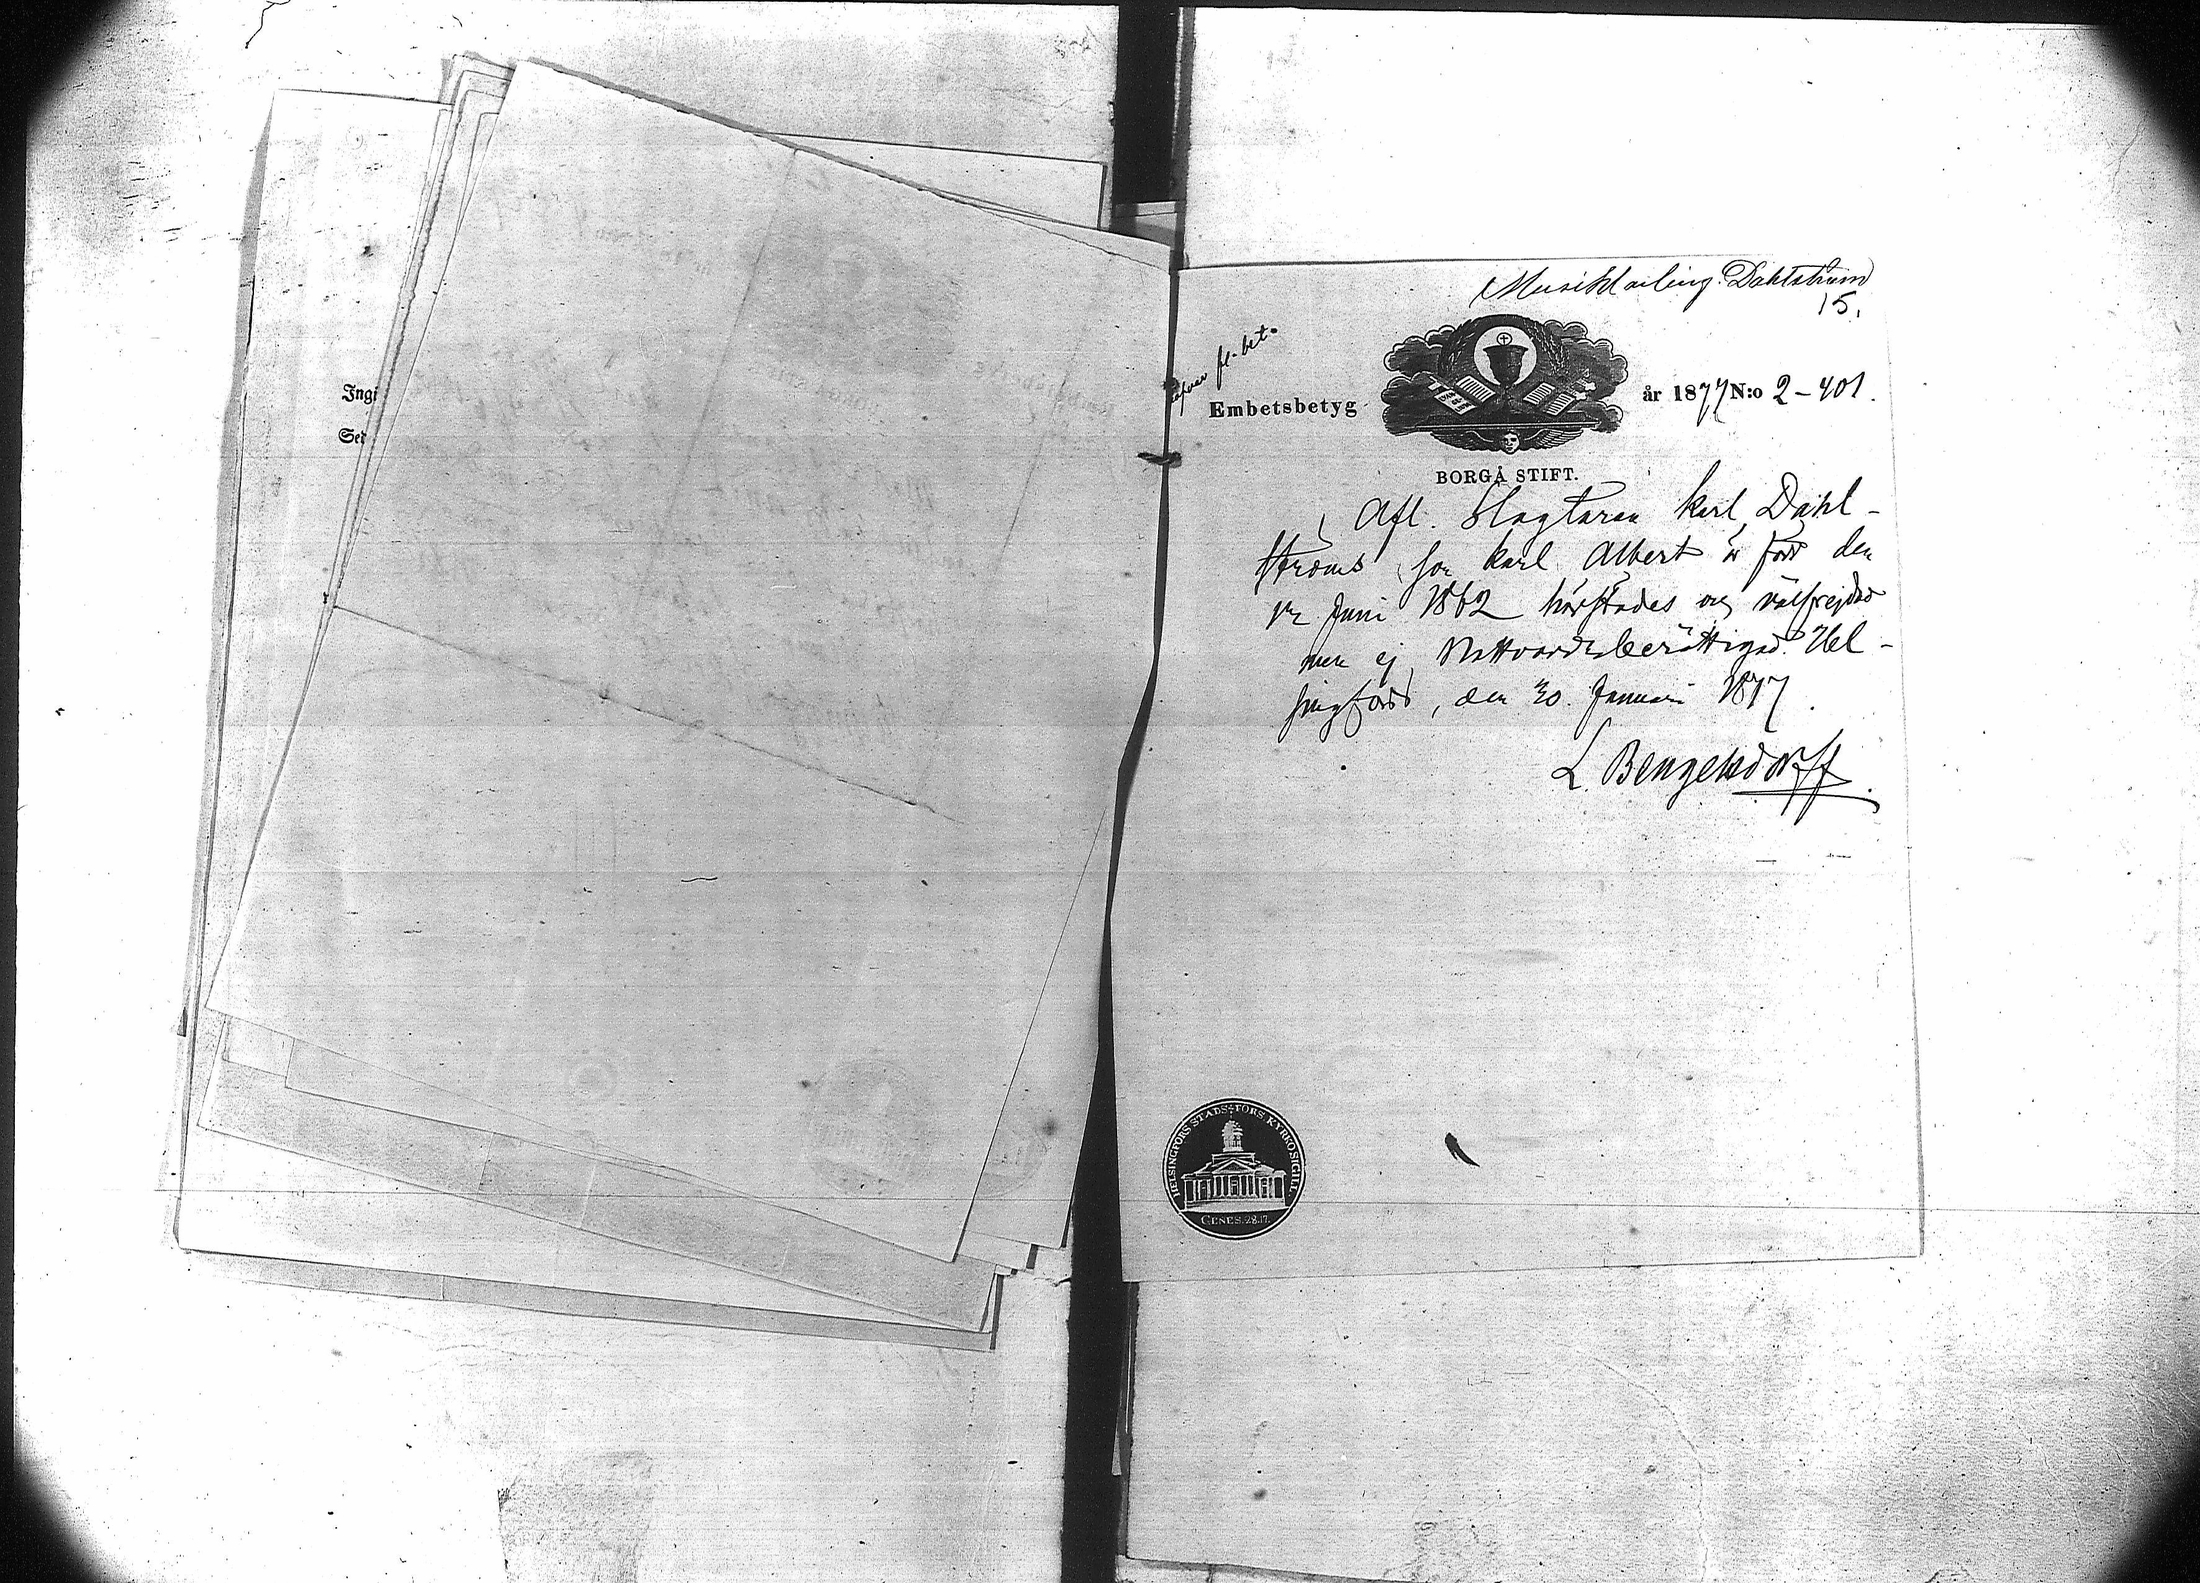 Ingi
Sed
Musiklärling Dahlström
15.
fl. bet.
Embetsbetyg
år 1877 N:o 2-401.
BORGÅ STIFT.
Afl. Slagtaren Karl Dahl-
ströms son Karl Albert är född den
Juni 1862 härstädes och välfrejdad
men ej Nattvardsberättigad. Hel-
singfors, den 30 Januari 1877.
L. Bengelsdorff.
HELSINGFORS STADS FÖRS. KYRKOSIGILL
GENES. 28.17.